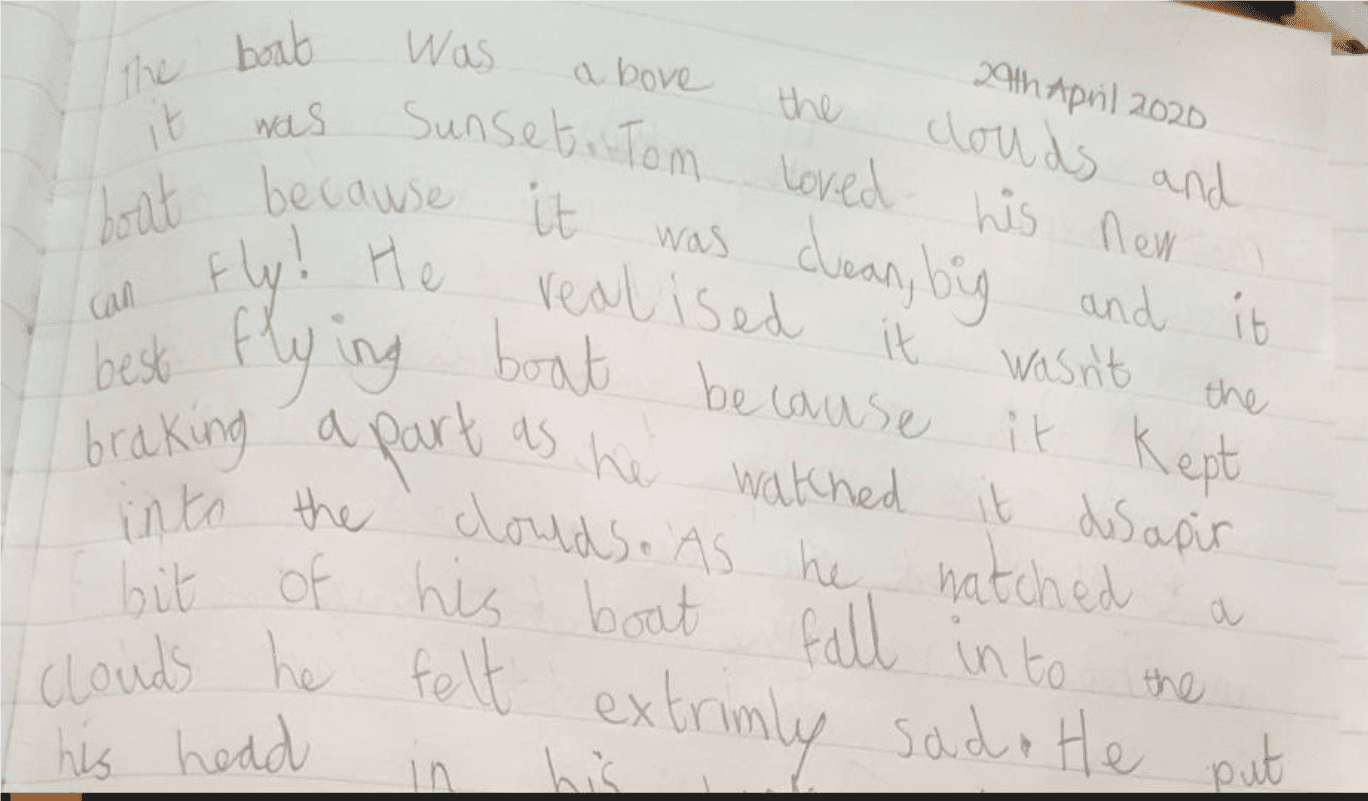 29th April 2020
The boat Was above the clouds and
it was Sunset. Tom loved his New
boat because it was clean, big and it
can fly! He realised it wasn't the
best flying boat because it Kept
braking apart as he watched it disapir
into the clouds. As he watched a
bit of his boat fall into the
clouds he felt extrimly sad. He put
his head in his